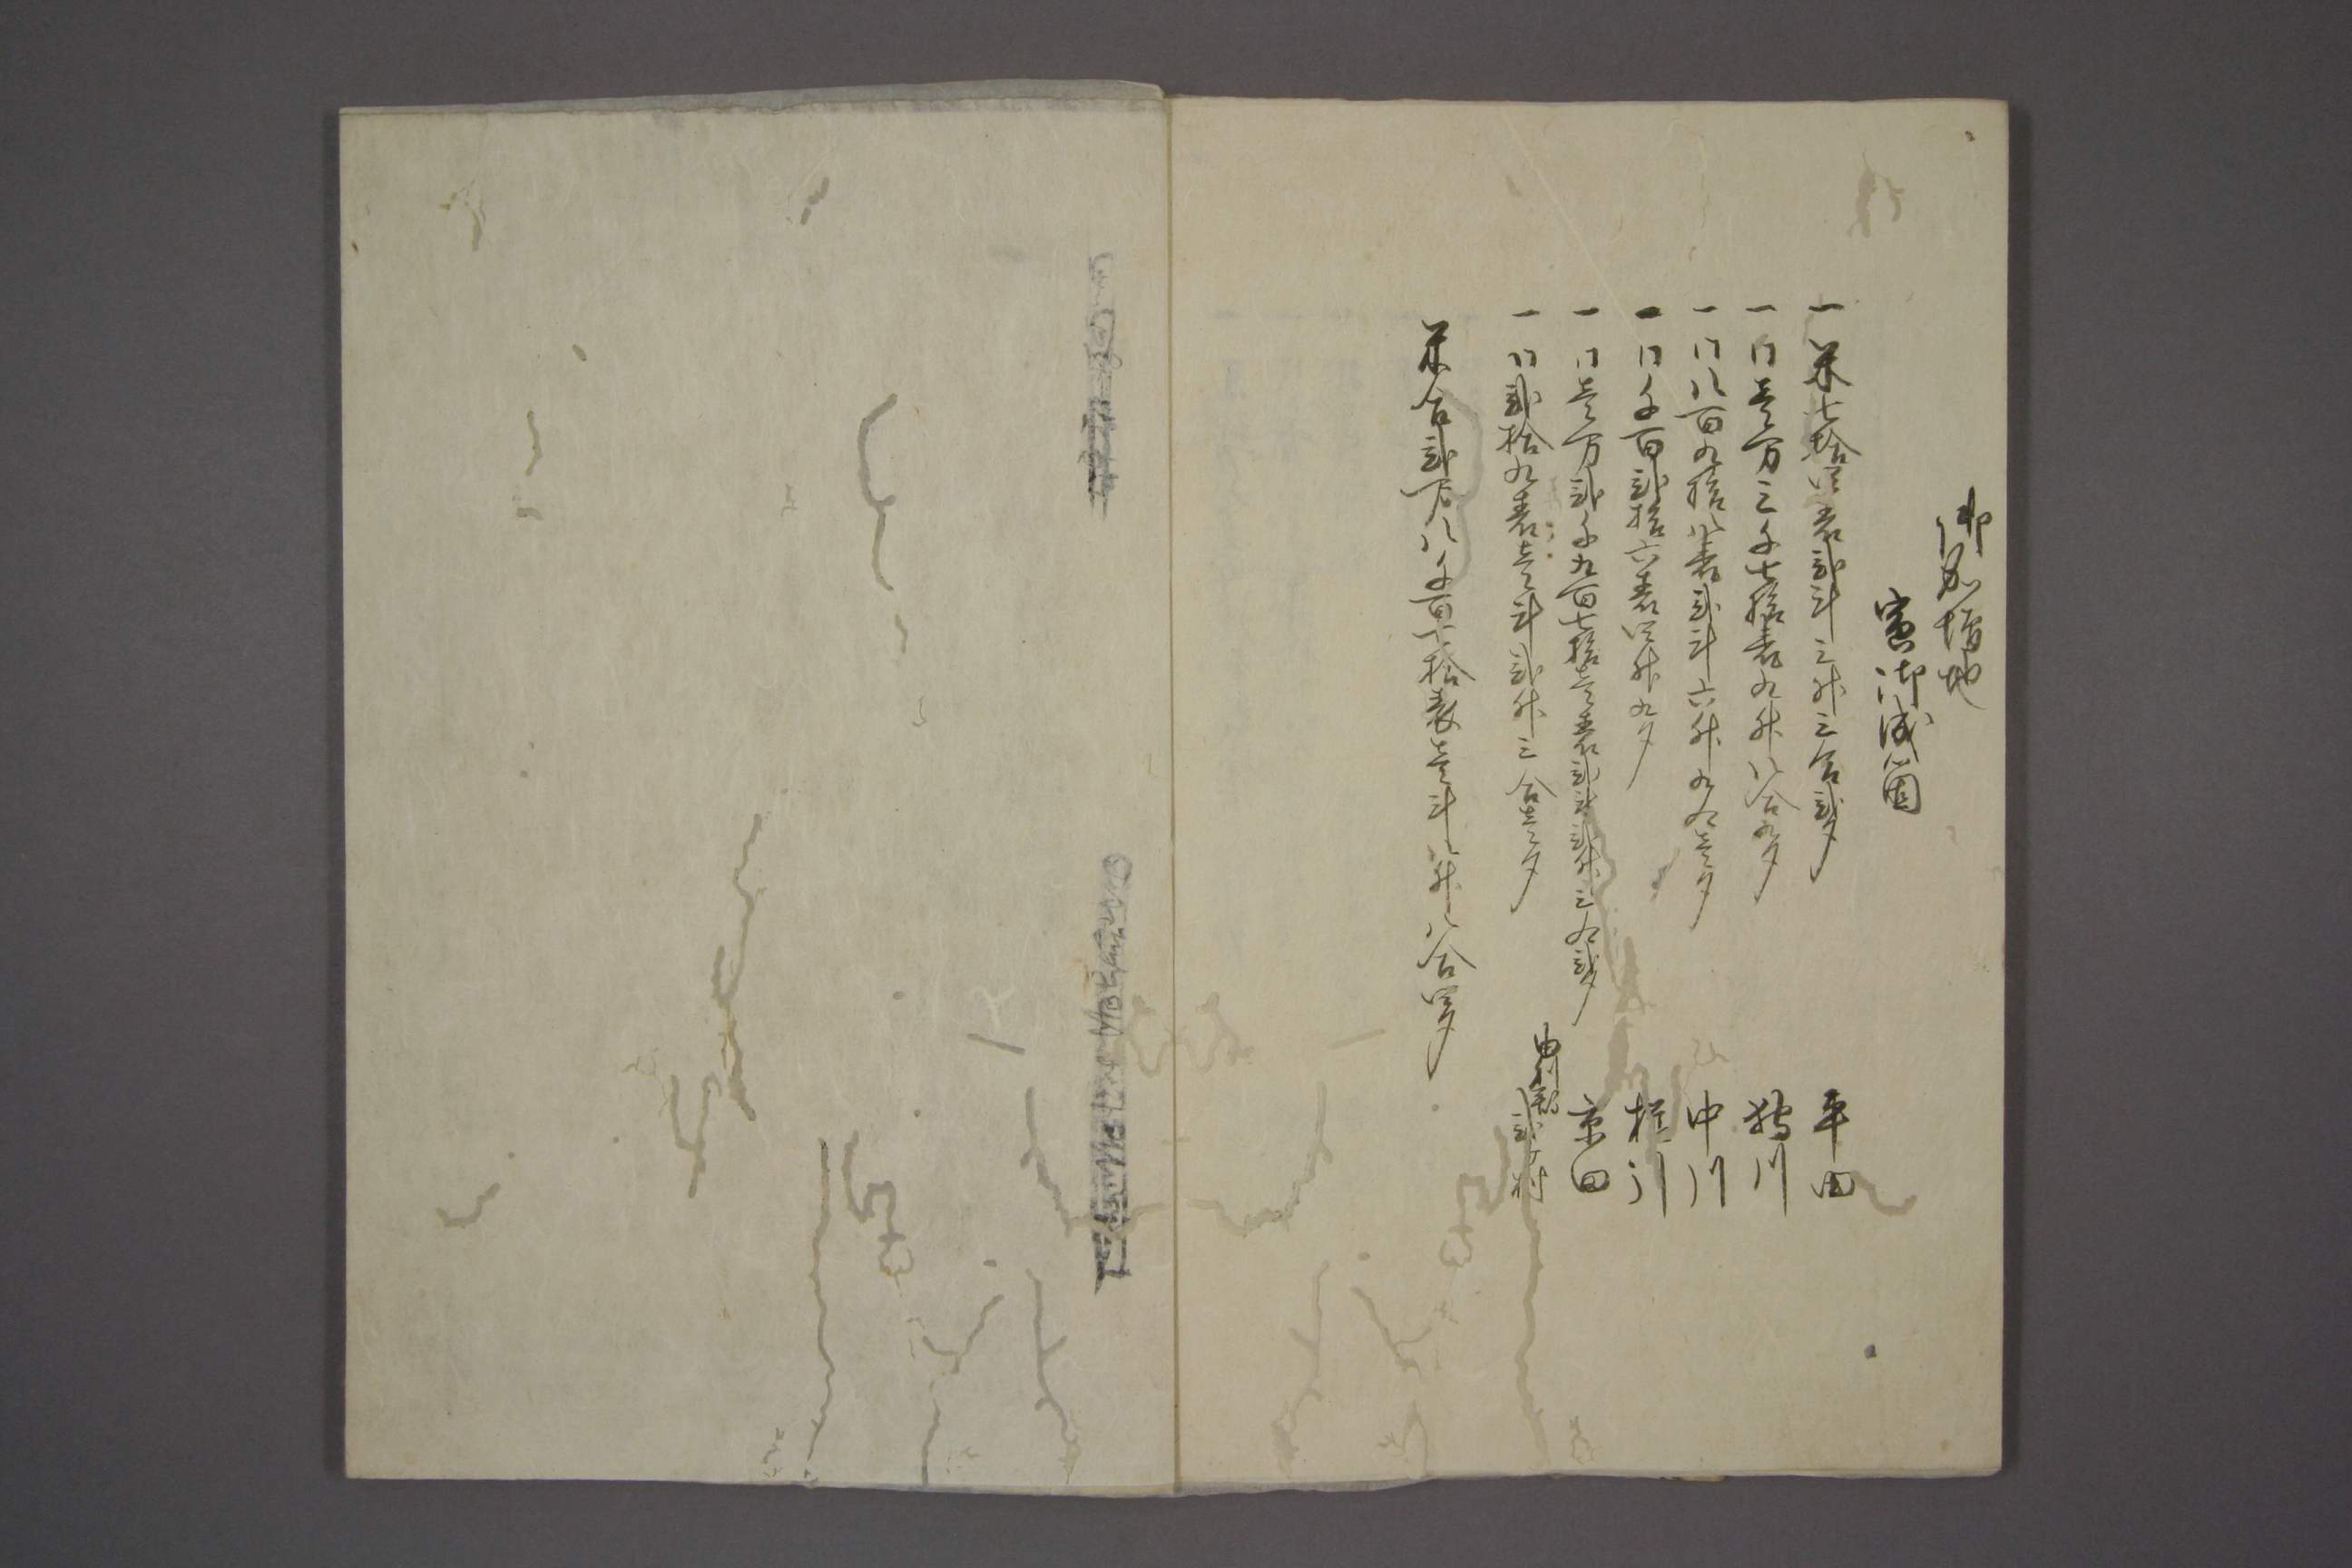 御加増地
寅御成箇
一米七拾四表弐斗三升三合弐夕　平田
一同壱万三千七拾表九升八合九夕　狩川
一同八百九拾八表弐斗六升九合壱夕　中川
一同千百弐拾六表四升九夕　櫛引
一同壱万弐千九百七拾壱表弐斗弐升三合弐夕　京田
一同弐拾九表壱斗弐升三合壱夕　由利郡弐ヶ村
米合弐万八千百七拾表壱斗八升八合四夕